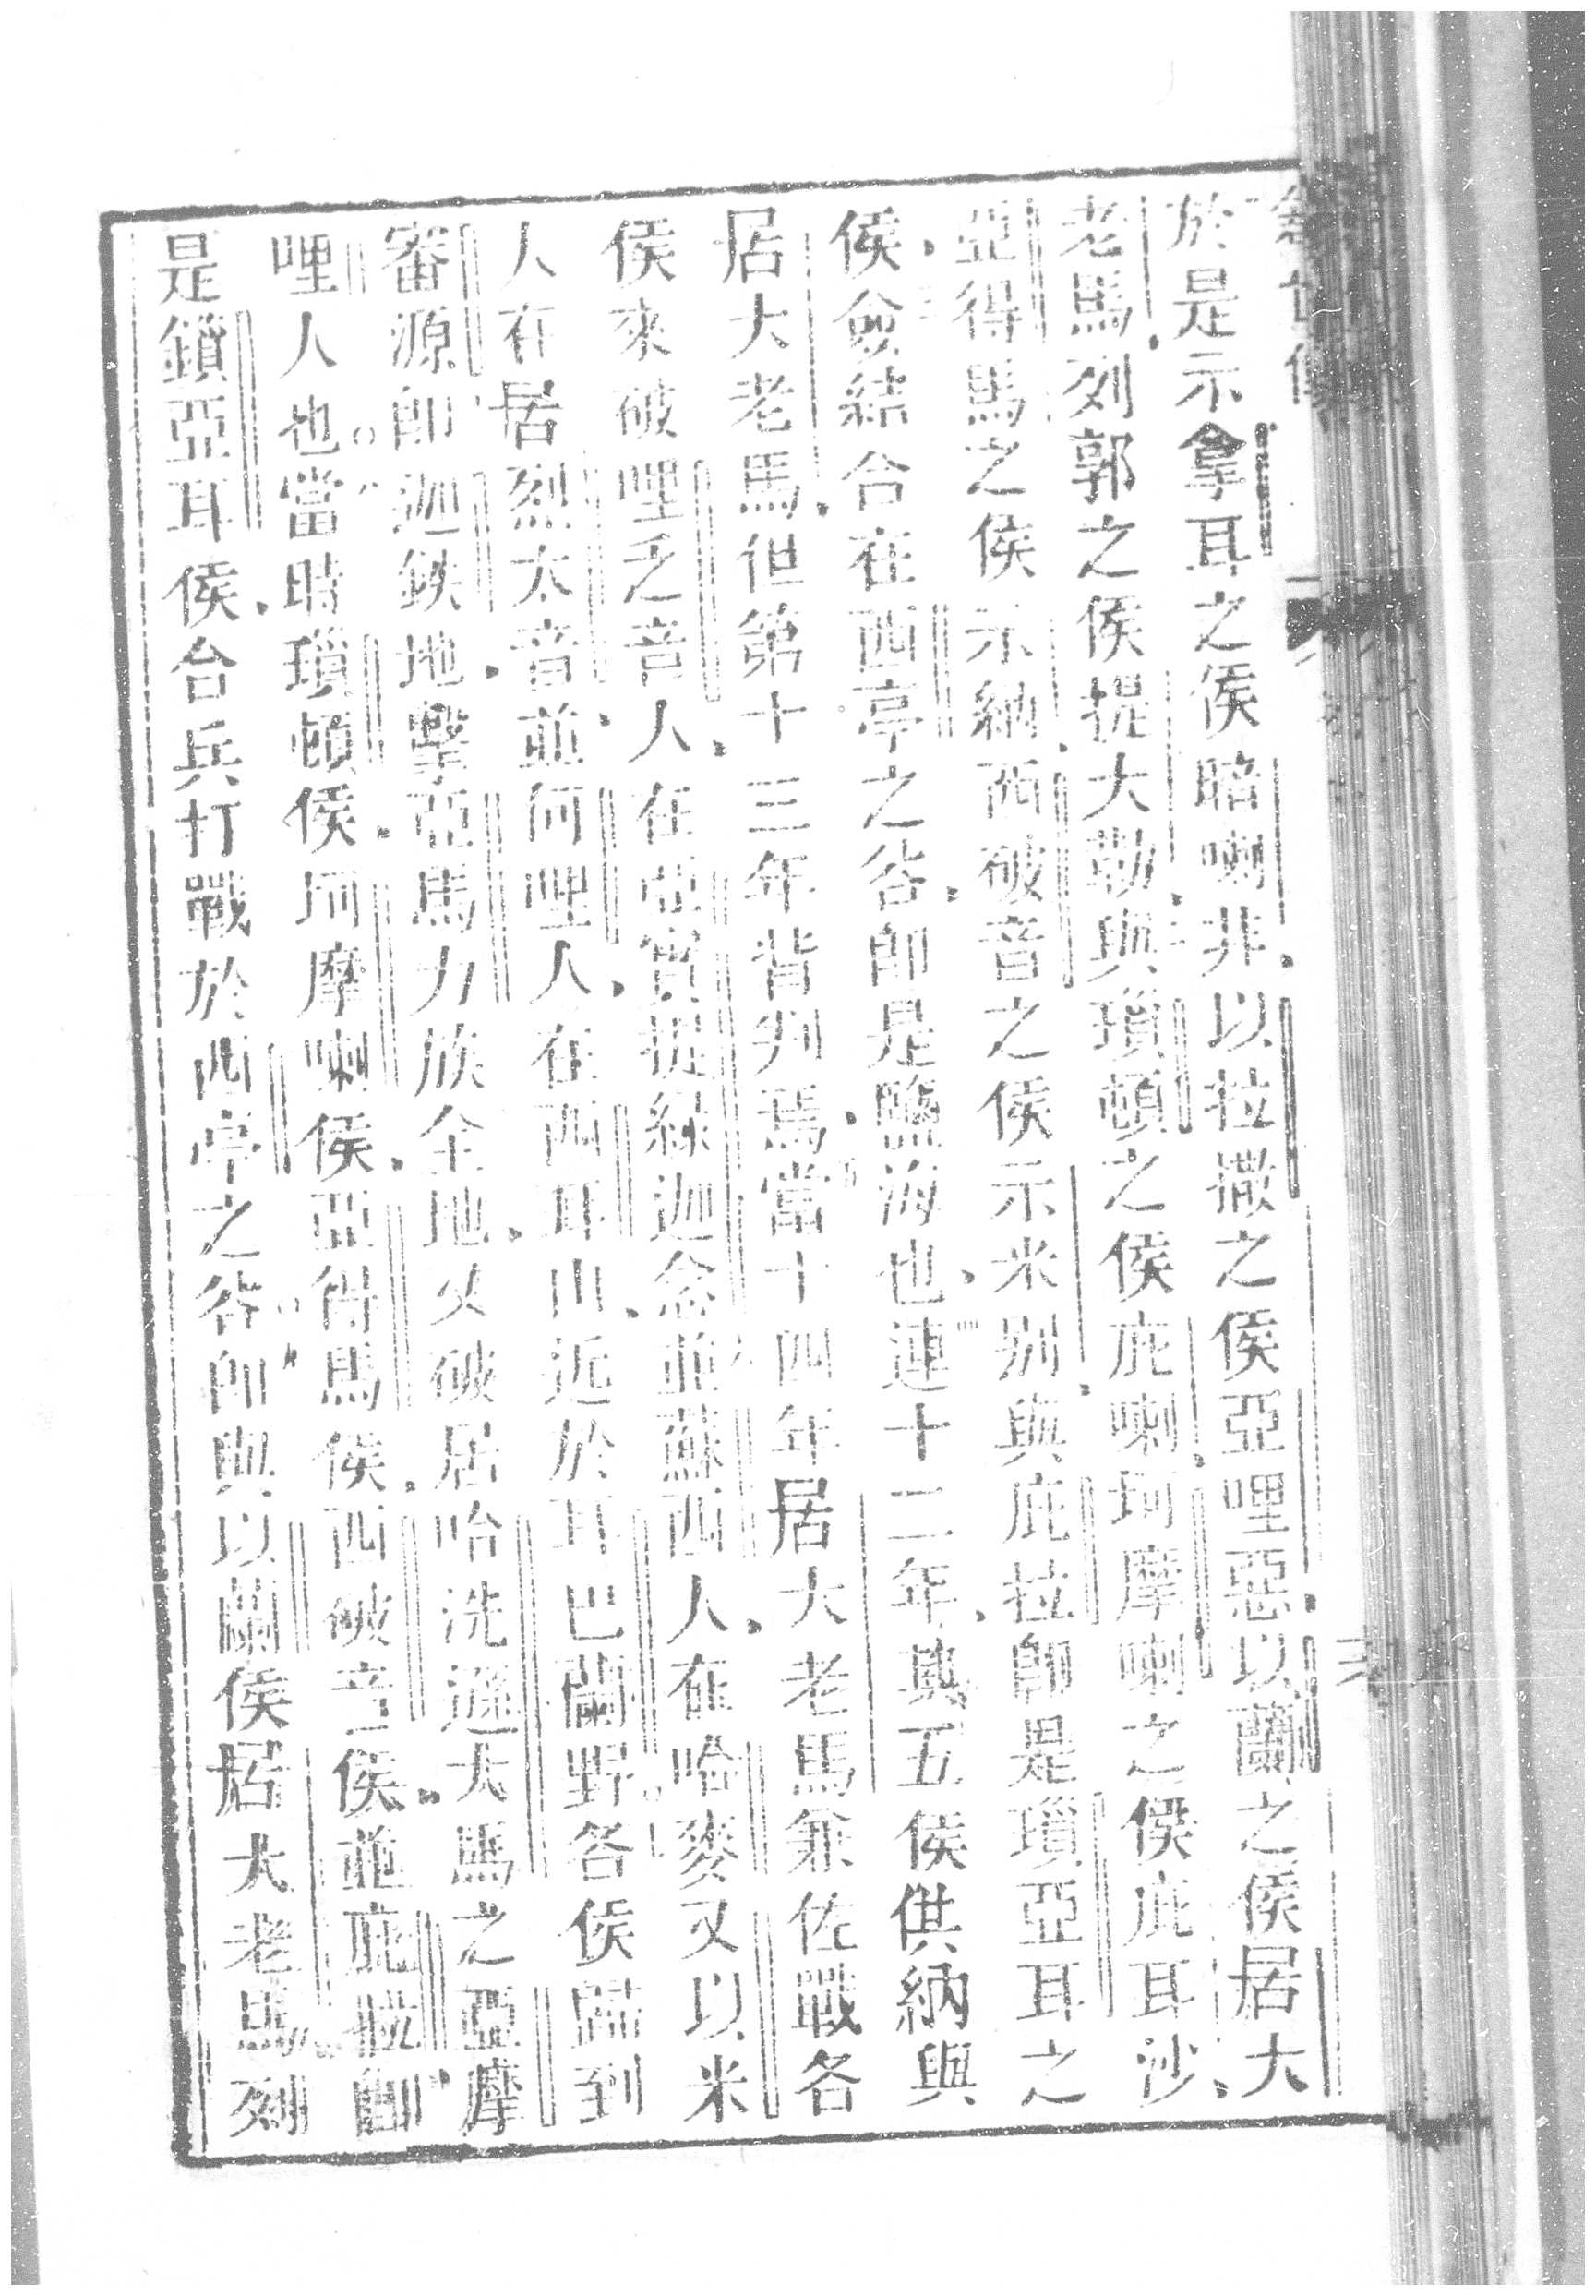 於是示拿耳之侯暗喇非以拉撒之侯亞哩惡以蘭之侯居大
老馬列郭之侯提大勒與瑣頓之侯庇喇坷摩喇之侯庇耳沙
亞得馬之侯示納西破音之侯示米别與庇拉即是瑣亞耳之
侯僉結合在西亭之谷即是鹽海也連十二年其五侯供納與
居大老馬但第十三年背判焉當十四年居大老馬兼佐戰各
侯來破哩乏音人在亞實提綠迦念並蘇西人在哈麥又以米
人在居烈太音並何哩人在西耳山近於耳巴蘭野各侯歸到
審源即迦鉄地擊亞馬力族全地又破居哈洗遜大馬之亞摩
哩人也當時瑣頓侯坷摩喇侯亞得馬侯西破音侯並庇拉即
是鎖亞耳侯台兵打戰於西亭之谷即與以蘭侯居大老馬列